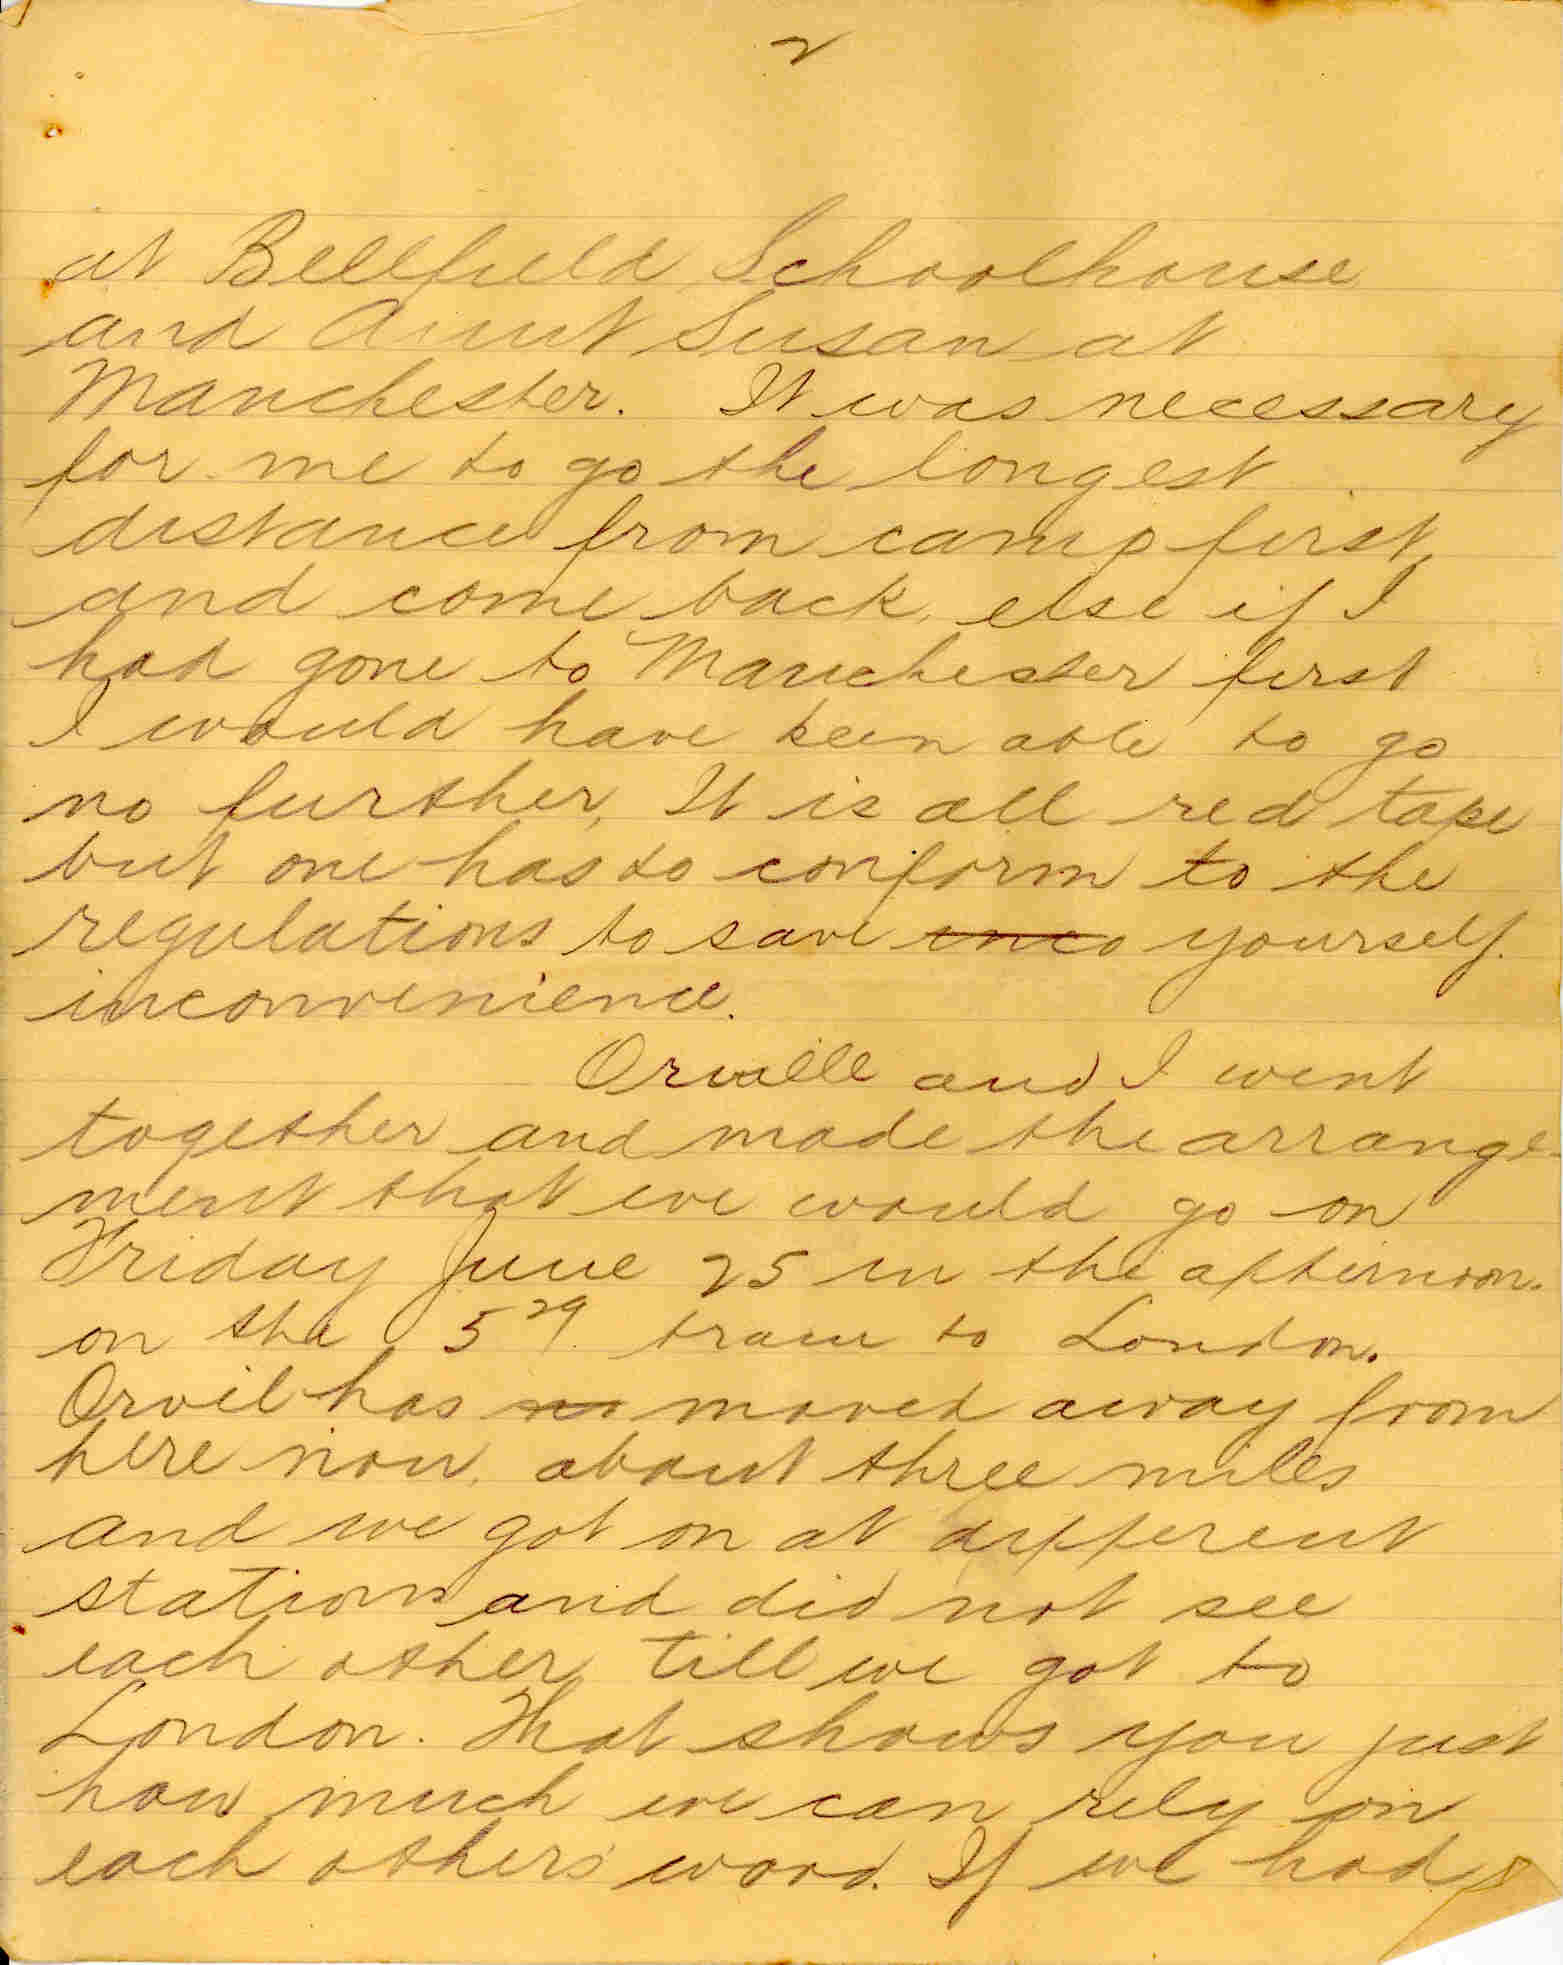 2
at Bellfield Schoolhouse
and Aunt Susan at
Manchester. It was necessary
for me to go the longest
distance from camp first,
and come back, else if I
had gone to Manchester first
I would have been able to go
no further, It is all red tape
but one has to conform to the
regulations to save inco yourself.
inconvenience.
Orville and I went
together and made the arrange-
ment that we would go on
Friday June 25 in the afternoon.
on the 5 29 train to London.
Orvil has mo moved away from
here now, about three miles
and we got on at different
stations and did not see
each other till we got to
London. That shows you just
how much we can rely on
each others' word. If we had